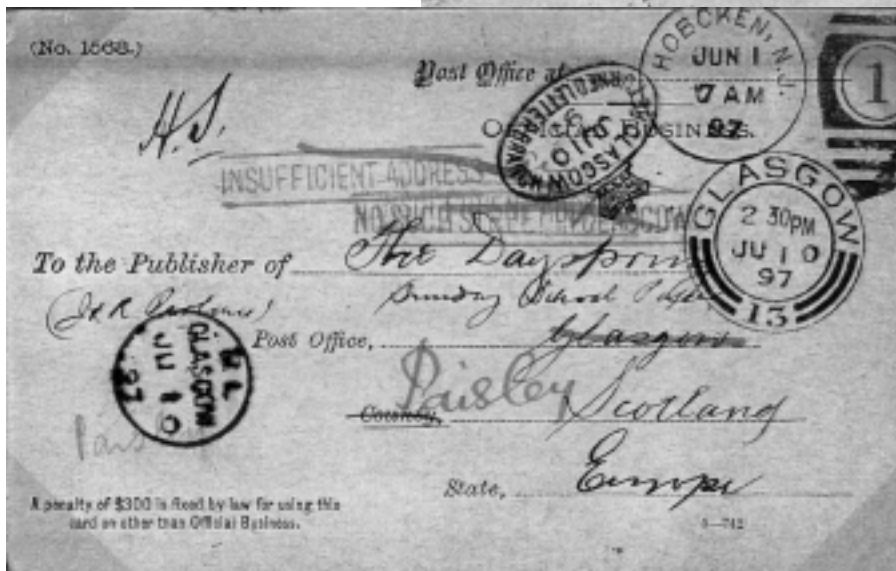 (No. 1568.)
Post Office at
HOBOKEN, N.J.
JUN 1
7 AM
97
1
H.S.
OFFICIAL BUSINESS.
GLASGOW
JU 10
INSUFFICIENT ADDRESS
NO SUCH STREET GLASGOW
GLASGOW
2 30PM
JU 10
97
13
To the Publisher of The Dayspring
Sunday School Paper
Post Office, Glasgow
GLASGOW
JU 10
97
Paisley
County, Scotland
Paisley
State, Europe
A penalty of $300 is fixed by law for using this
card on other than Official Business.
5—742